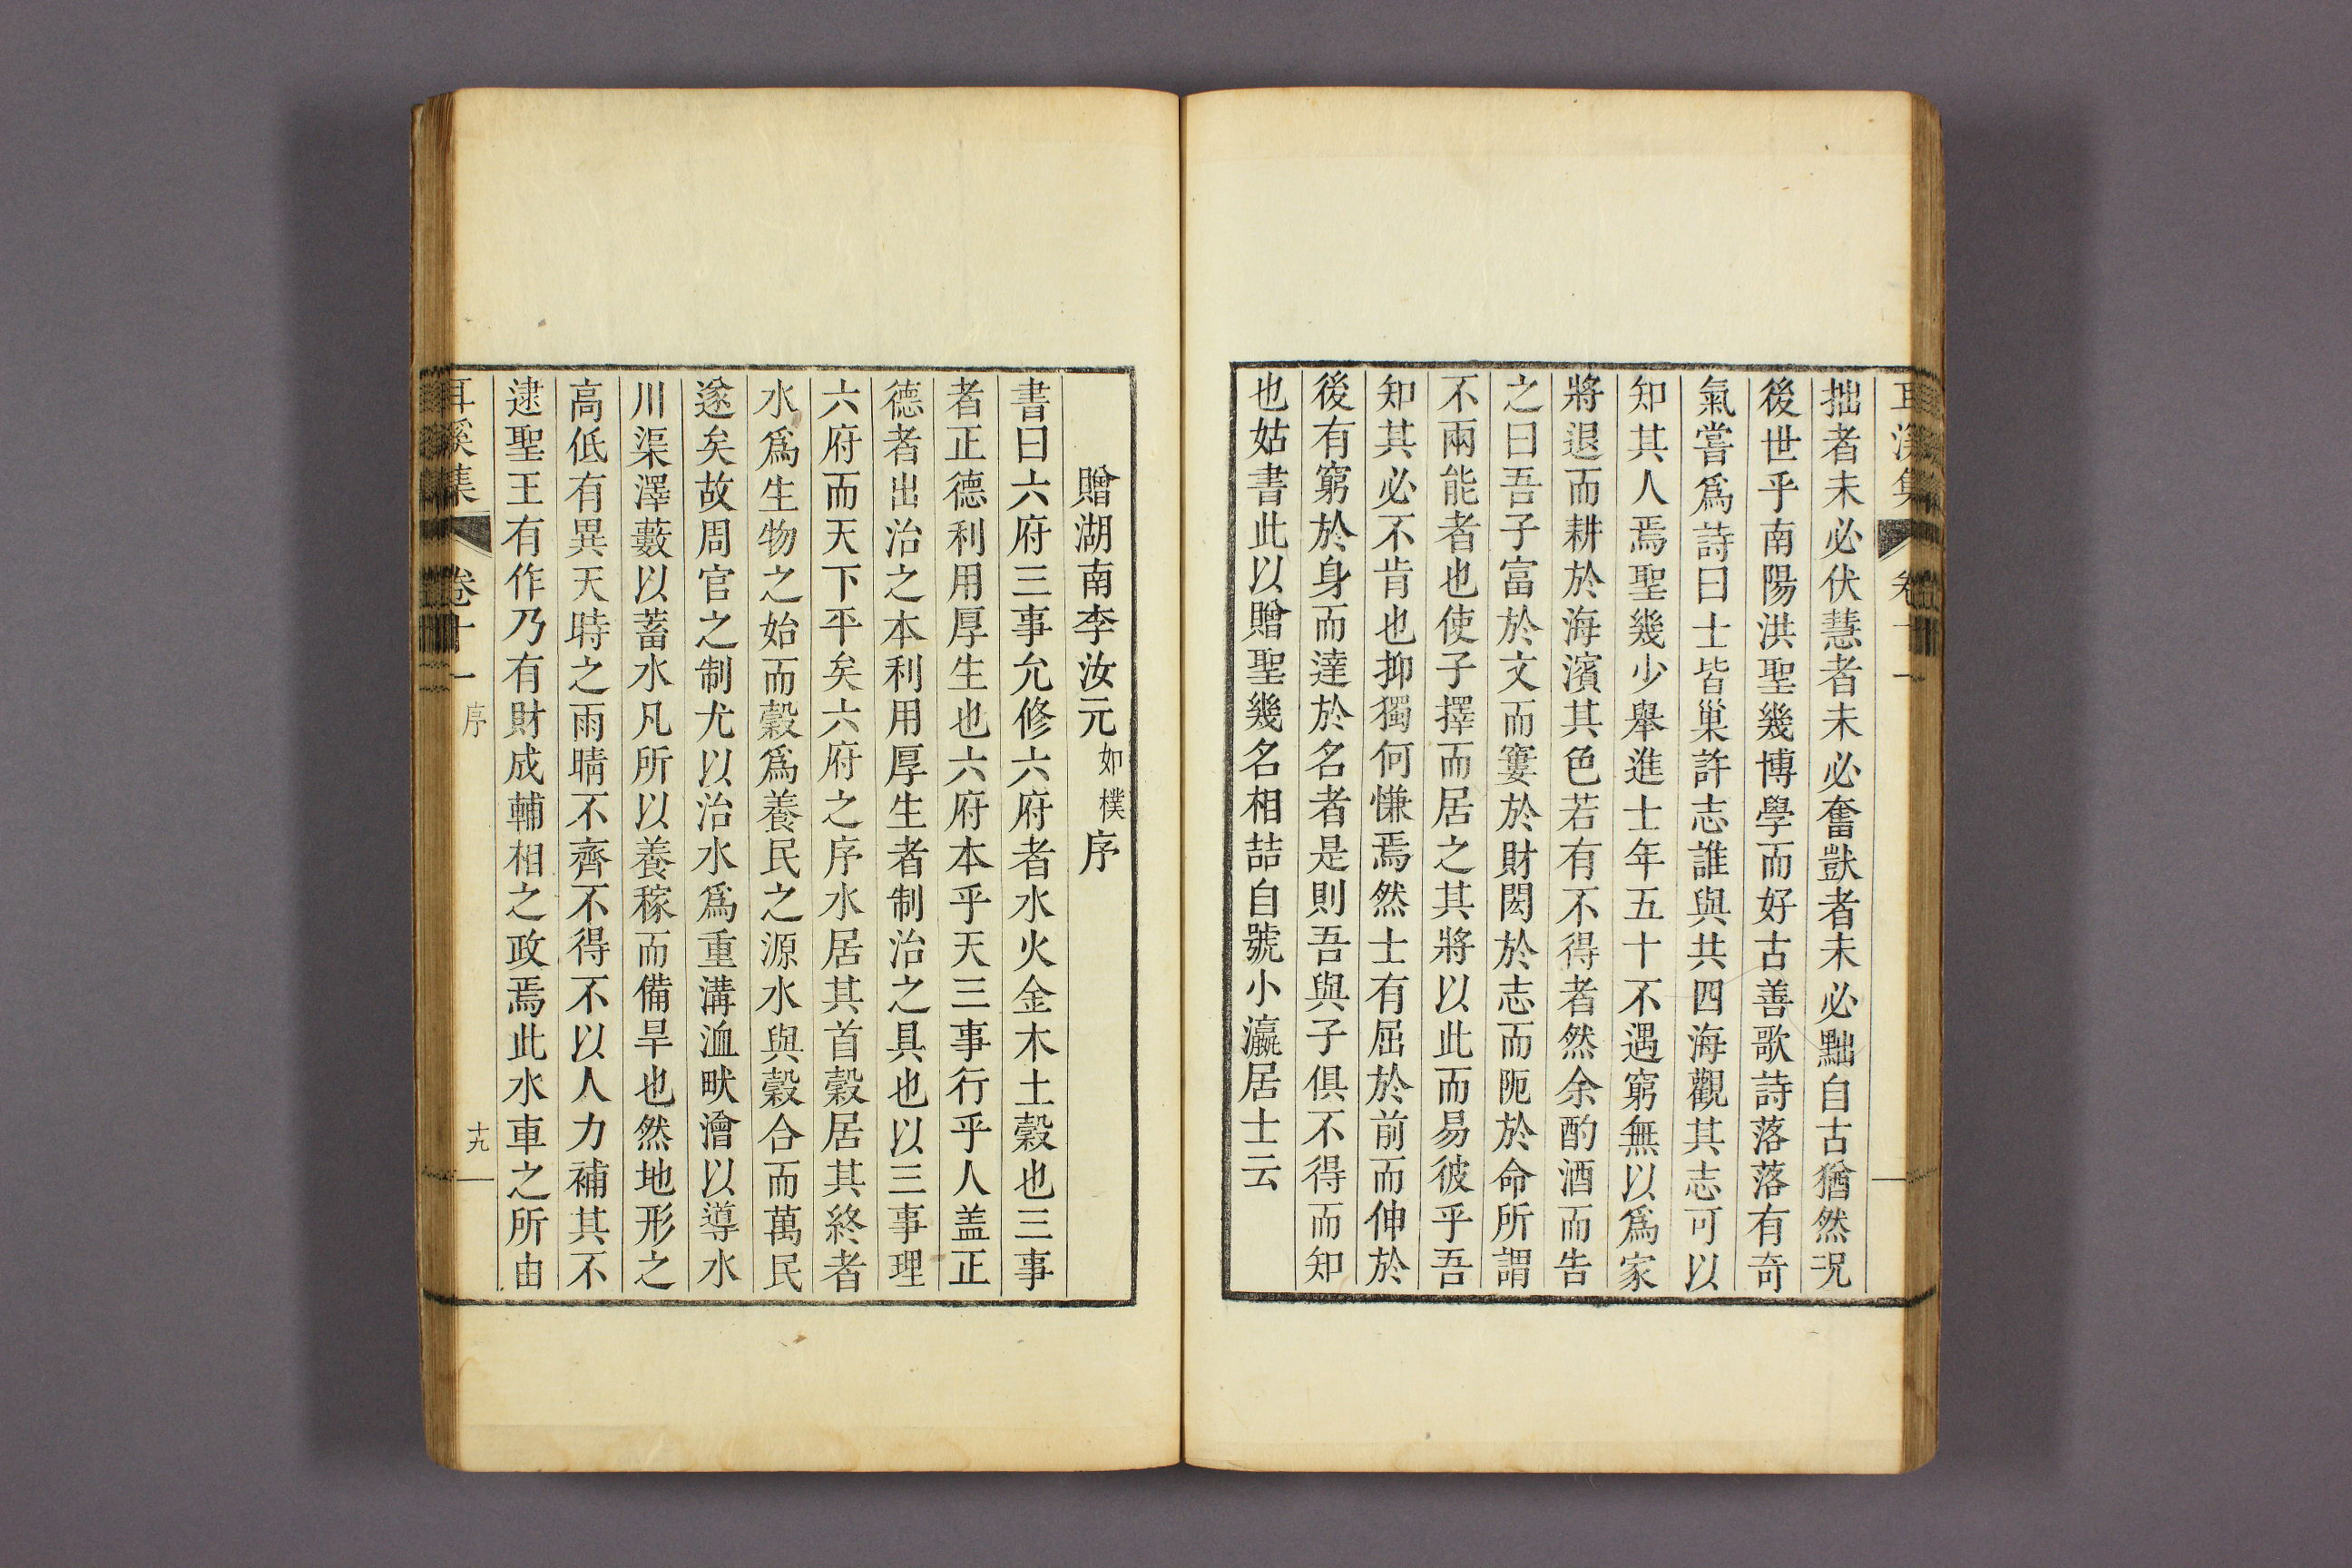 拙者未必伏慧者未必奮獃者未必黜自古猶然况
後世乎南陽洪聖幾博學而好古善歌詩落落有奇
氣嘗爲詩曰士皆巢許志誰與共四海觀其志可以
知其人焉聖幾少舉進士年五十不遇窮無以爲家
將退而耕於海濱其色若有不得者然余酌酒而告
之曰吾子富於文而窶於財閎於志而阨於命所謂
不兩能者也使子擇而居之其將以此而易彼乎吾
知其必不肯也抑獨何慊焉然士有屈於前而伸於
後有窮於身而達於名者是則吾與子俱不得而知
也姑書此以贈聖幾名相喆自號小瀛居士云
贈湖南李汝元如樸序
書曰六府三事允修六府者水火金木土穀也三事
者正德利用厚生也六府本乎天三事行乎人盖正
德者出治之本利用厚生者制治之具也以三事理
六府而天下平矣六府之序水居其首穀居其終者
水爲生物之始而穀爲養民之源水與穀合而萬民
遂矣故周官之制尤以治水爲重溝洫畎澮以導水
川渠澤藪以蓄水凡所以養稼而備旱也然地形之
高低有異天時之雨晴不齊不得不以人力補其不
逮聖王有作乃有財成輔相之政焉此水車之所由
耳溪集
卷十一
序
十九